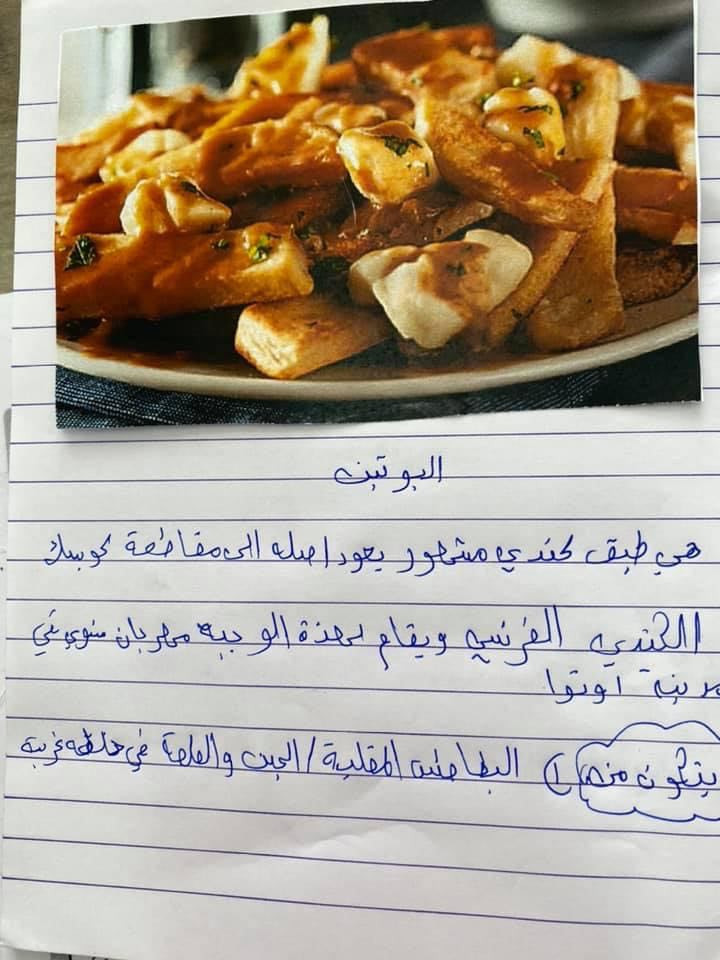 البوتين
هي طبق كندي مشهور يعود اصله الى مقاطعة كوبيك
الكندي الفرنسي ويقام لهذة الوجبه مهرجان سنوي في
مدينة أوتوا
يتكون من 1) البطاطس المقلية / الجبن والصلصة في خلطه غريبة